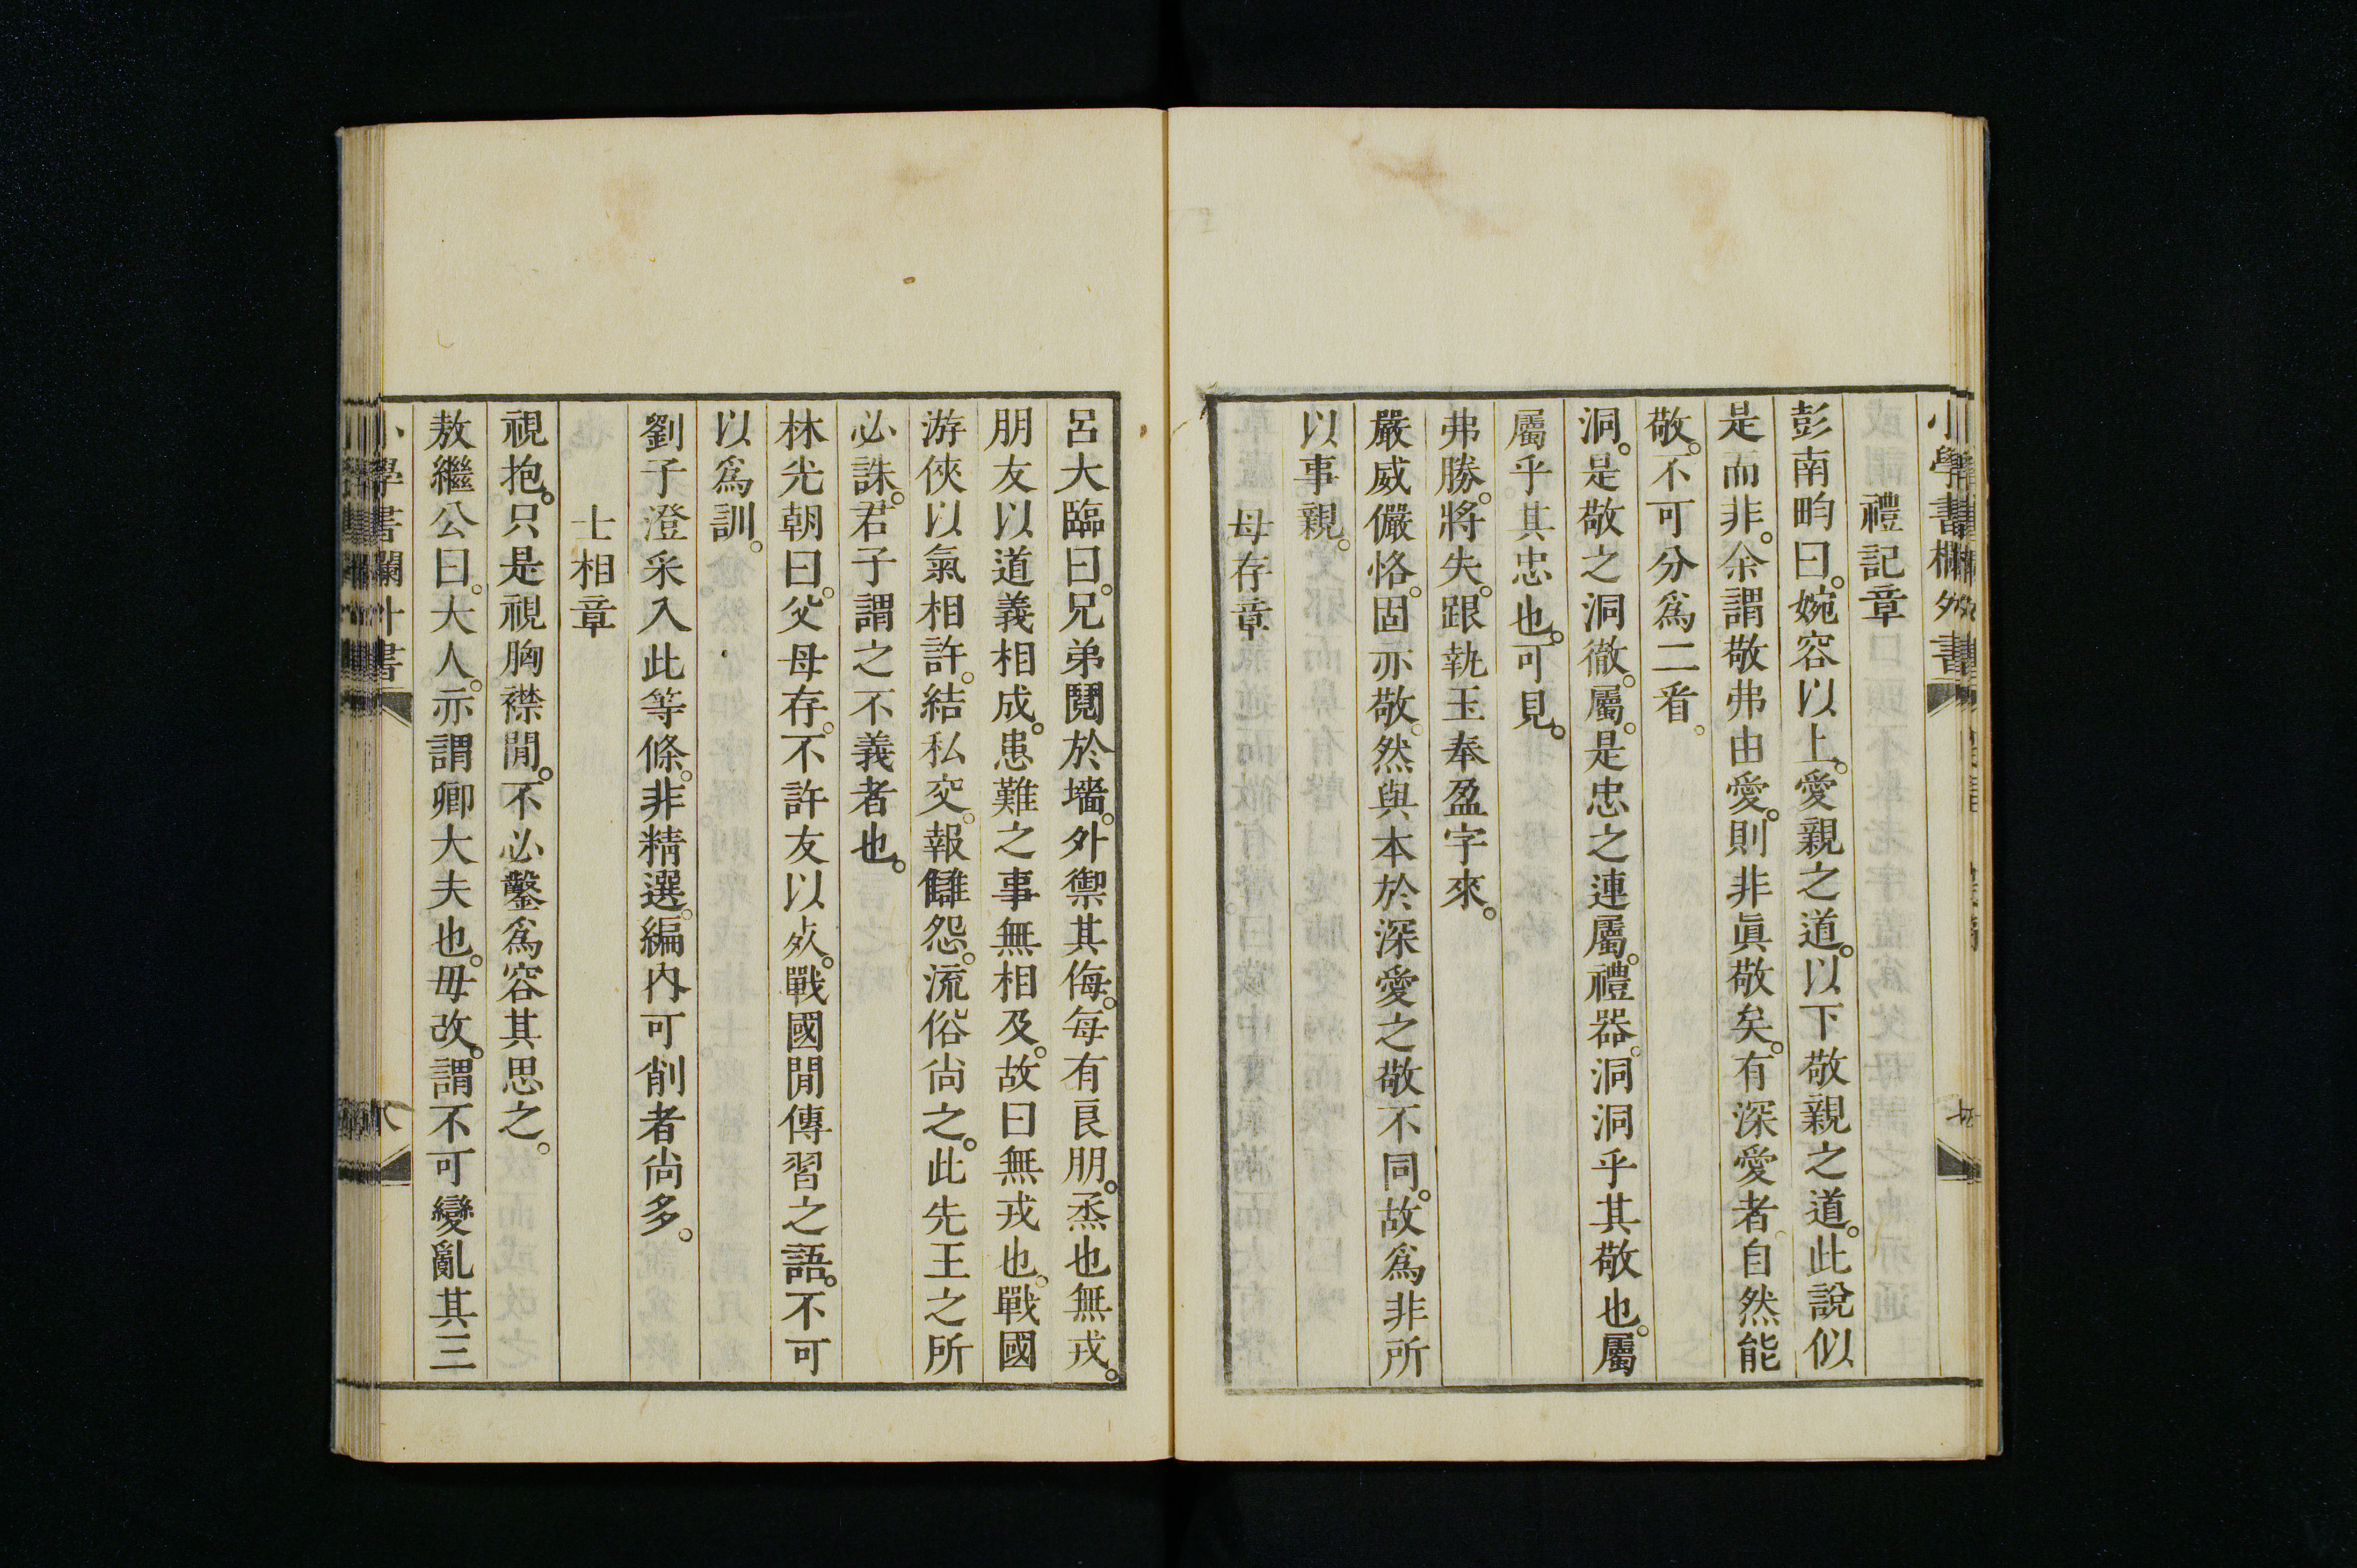 小學書欄外書
七
禮記章
彭南畇曰。婉容以上。愛親之道。以下敬親之道。此說似
是而非。余謂敬弗由愛。則非眞敬矣。有深愛者。自然能
敬。不可分爲二看。
洞。是敬之洞徹。屬。是忠之連屬。禮器。洞洞乎其敬也。屬
屬乎其忠也。可見。
弗勝。將失。跟執玉奉盈字來。
嚴威儼恪。固亦敬。然與本於深愛之敬不同。故爲非所
以事親。
母存章
呂大臨曰。兄弟鬩於墻。外禦其侮。每有良朋。烝也無戎。
朋友以道義相成。患難之事無相及。故曰無戎也。戰國
游俠以氣相許。結私交。報讎怨。流俗尙之。此先王之所
必誅。君子謂之不義者也。
林光朝曰。父母存。不許友以死。戰國閒傳習之語。不可
以爲訓。
劉子澄采入此等條。非精選。編內可削者尙多。
士相章
視抱。只是視胸襟閒。不必鑿爲容其思之。
敖繼公曰。大人。亦謂卿大夫也。毋改。謂不可變亂其三
小學書欄外書
八